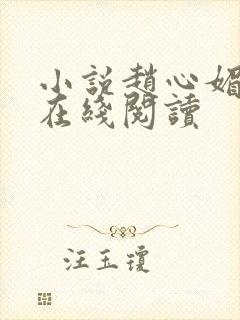 小説趙心媚
在綫閱讀
汪玉瓊